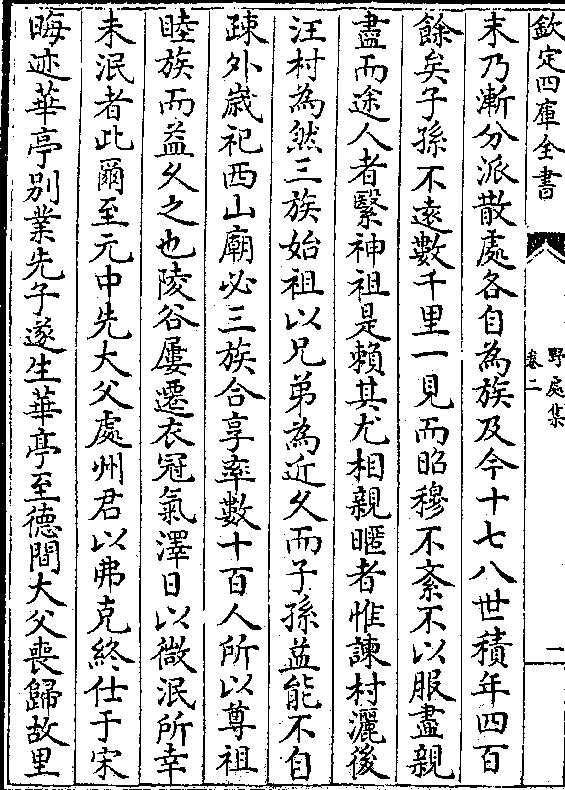 欽定四庫全書
野處集
卷二
一
末乃漸分派散處各自為族及今十七八世積年四百
餘矣子孫不遠數千里一見而昭穆不紊不以服盡親
盡而途人者繄神祖是賴其尤相親暱者惟諫村灑後
汪村為然三族始祖以兄弟為近久而子孫益能不自
疎外歲祀西山廟必三族合享率數十百人所以尊祖
睦族而益久之也陵谷屢遷衣冠氣澤日以微泯所幸
未泯者此爾至元中先大父處州君以弗克終仕于宋
晦迹華亭別業先子遂生華亭至德間大父喪歸故里